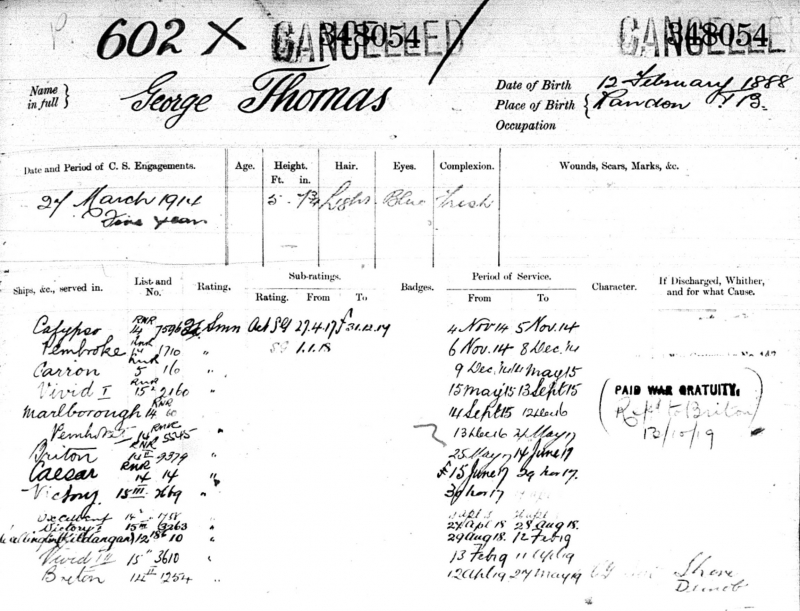 602 X CANCELLED 348054 CANCELLED 348054
Name in full } George Thomas
Date of Birth 12 February 1888
Place of Birth {
Occupation
Date and Period of C. S. Engagements. Age. Height. Ft. in. Hair. Eyes. Complexion. Wounds, Scars, Marks, &c.
27 March 1914 5 Light Blue Fresh
Five years
Ships, &c., served in. List and No. Rating. Sub-ratings. Rating. From To Badges. Period of Service. From To Character. If Discharged, Whither, and for what Cause.
Calypso RNR 14 7596 Smn Act SG 27.4.17 31.12.17 4 Nov 14 5 Nov. 14
Pembroke RNR 1710 " SG 1.1.18 6 Nov. 14 8 Dec. 14
Carron RNR 5 16 " 9 Dec. 14 14 May 15
Vivid I RNR 15 2160 " 15 May 15 13 Sept 15 PAID WAR GRATUITY.
Marlborough RNR 14 60 14 Sept 15 12 Dec 16 Rept to Briton
Pembroke RNR 14 5545 " 13 Dec 16 24 May 17 13/10/19
Briton RNR 14 II 9379 " 25 May 17 14 June 17
Caesar RNR 14 14 " 15 June 17 29 Nov 17.
Victory 15 III 7669 " 30 Nov 17
Excellent 14 1758 "
Victory 15 III 13263 " 27 Apl 18 28 Aug 18.
(Kildangan) 12 10 " 29 Aug 18. 12 Feb 19
Vivid III 15 3610 " 13 Feb 19 11 Apl 19
Briton 14 II 1254 " 12 Apl 19 27 May 19 Shore
Demob